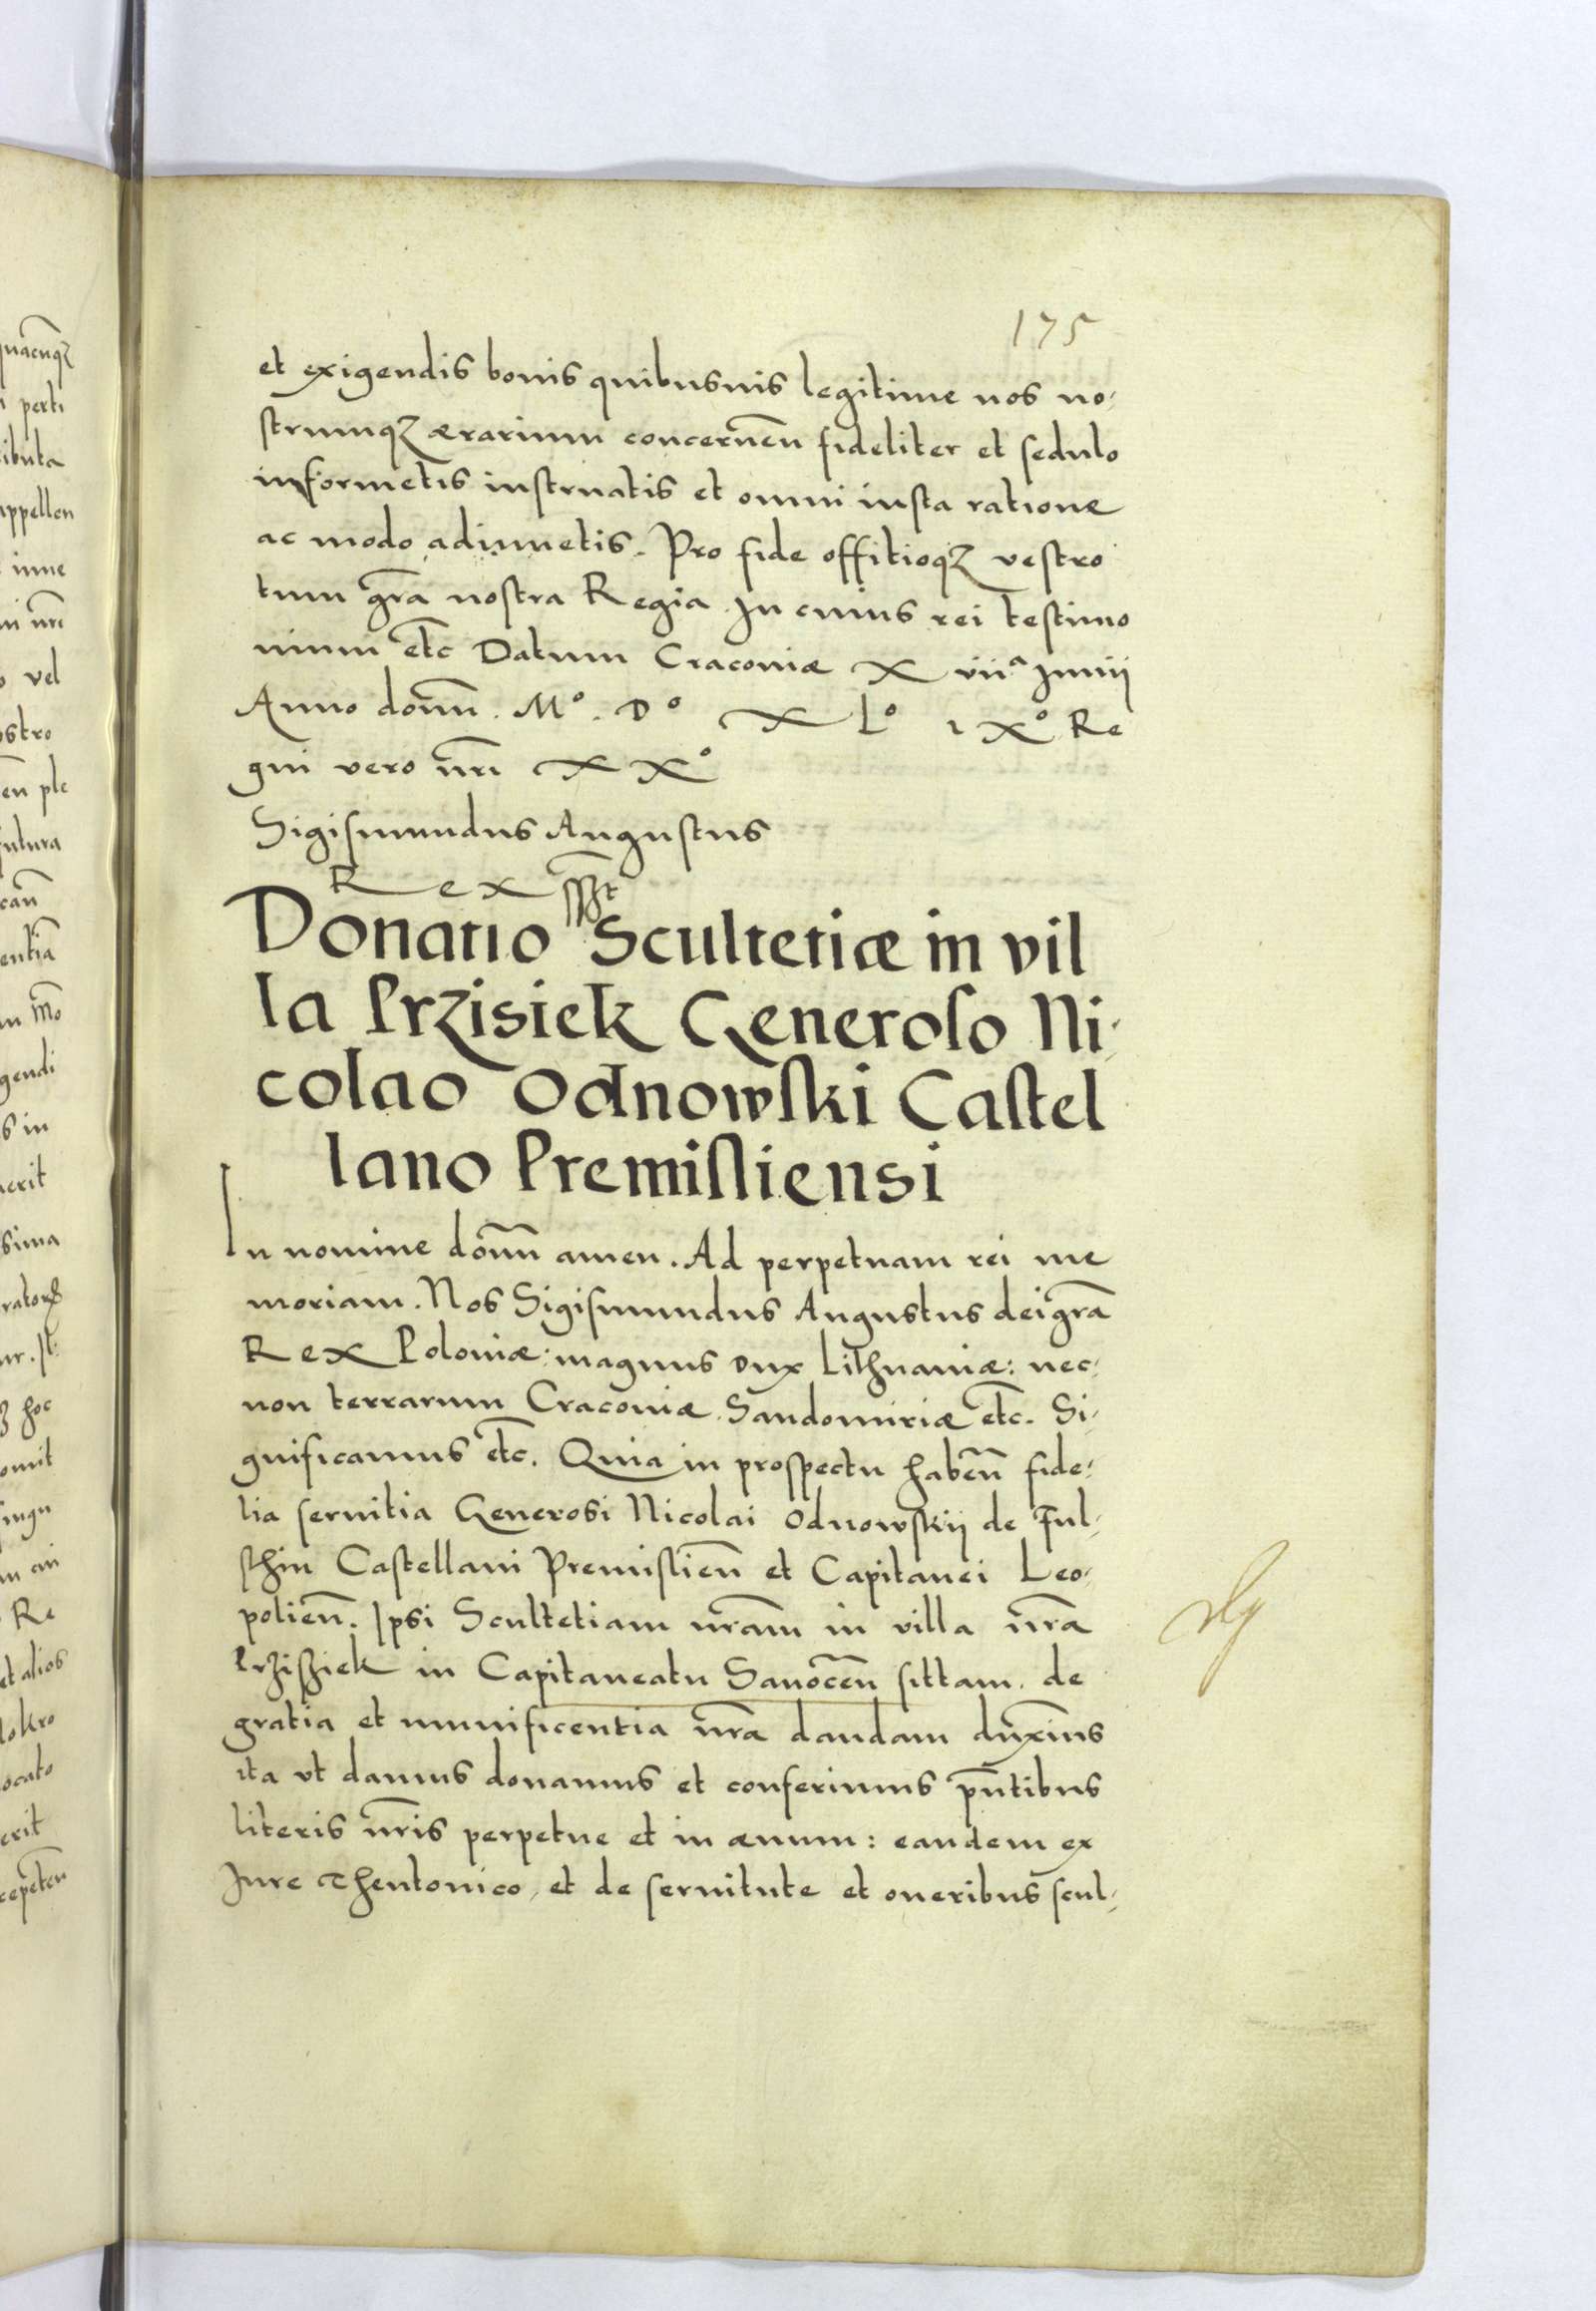 175
et exigendis bonis quibusuis legitime nos no-
strumqꝫ ærarium concerneñ fideliter et sedulo
informetis instruatis et omni iusta ratione
ac modo adiuuetis. Pro fide offitioqꝫ vestro
tum gra͞ nostra Regia. In cuius rei testimo
nium etc͞ Datum Cracoviæ X viiª Junij
Anno domn͞. Mº. Dº X Lº ıXº Re
gni vero nr͞i XXº
Sigismundus Augustus
Rex sszt
Donatio Scultetiæ in vil
la Przisiek Generoso Ni-
colao Odnowski Castel
lano Premisliensi
In nomine domn͞ amen. Ad perpetuam rei me
moriam. Nos Sigismundus Augustus dei gra͞
Rex Poloniæ: magnus Dux Lithuaniæ: nec-
non terrarum Cracoviæ Sandomiriæ etc͞. Si-
gnificamus etc͞. Quia in prospectu haben͞ fide-
lia seruitia Generosi Nicolai Odnowskij de Ful-
sthin Castellani Premislien͞ et Capitanei Leo-
polien͞. Ipsi Scultetiam nr͞am in villa nr͞a
Przisziek in Capitaneatu Sanocen͞ sittam. de
gratia et munificentia nr͞a dandam dux͞imus
ita vt damus donamus et conferimus pn͞tibus
literis nr͞is perpetue et in æuum: eandem ex
Jure Theutonico, et de seruitute et oneribus scul-
quacuqꝫ
perti
ibuta
appellen
nr͞i
vel
ostro
futura
entia͞
gendi
s in
erit
sima
hoc
omit
Re
et alios
lokro
ocato
erit